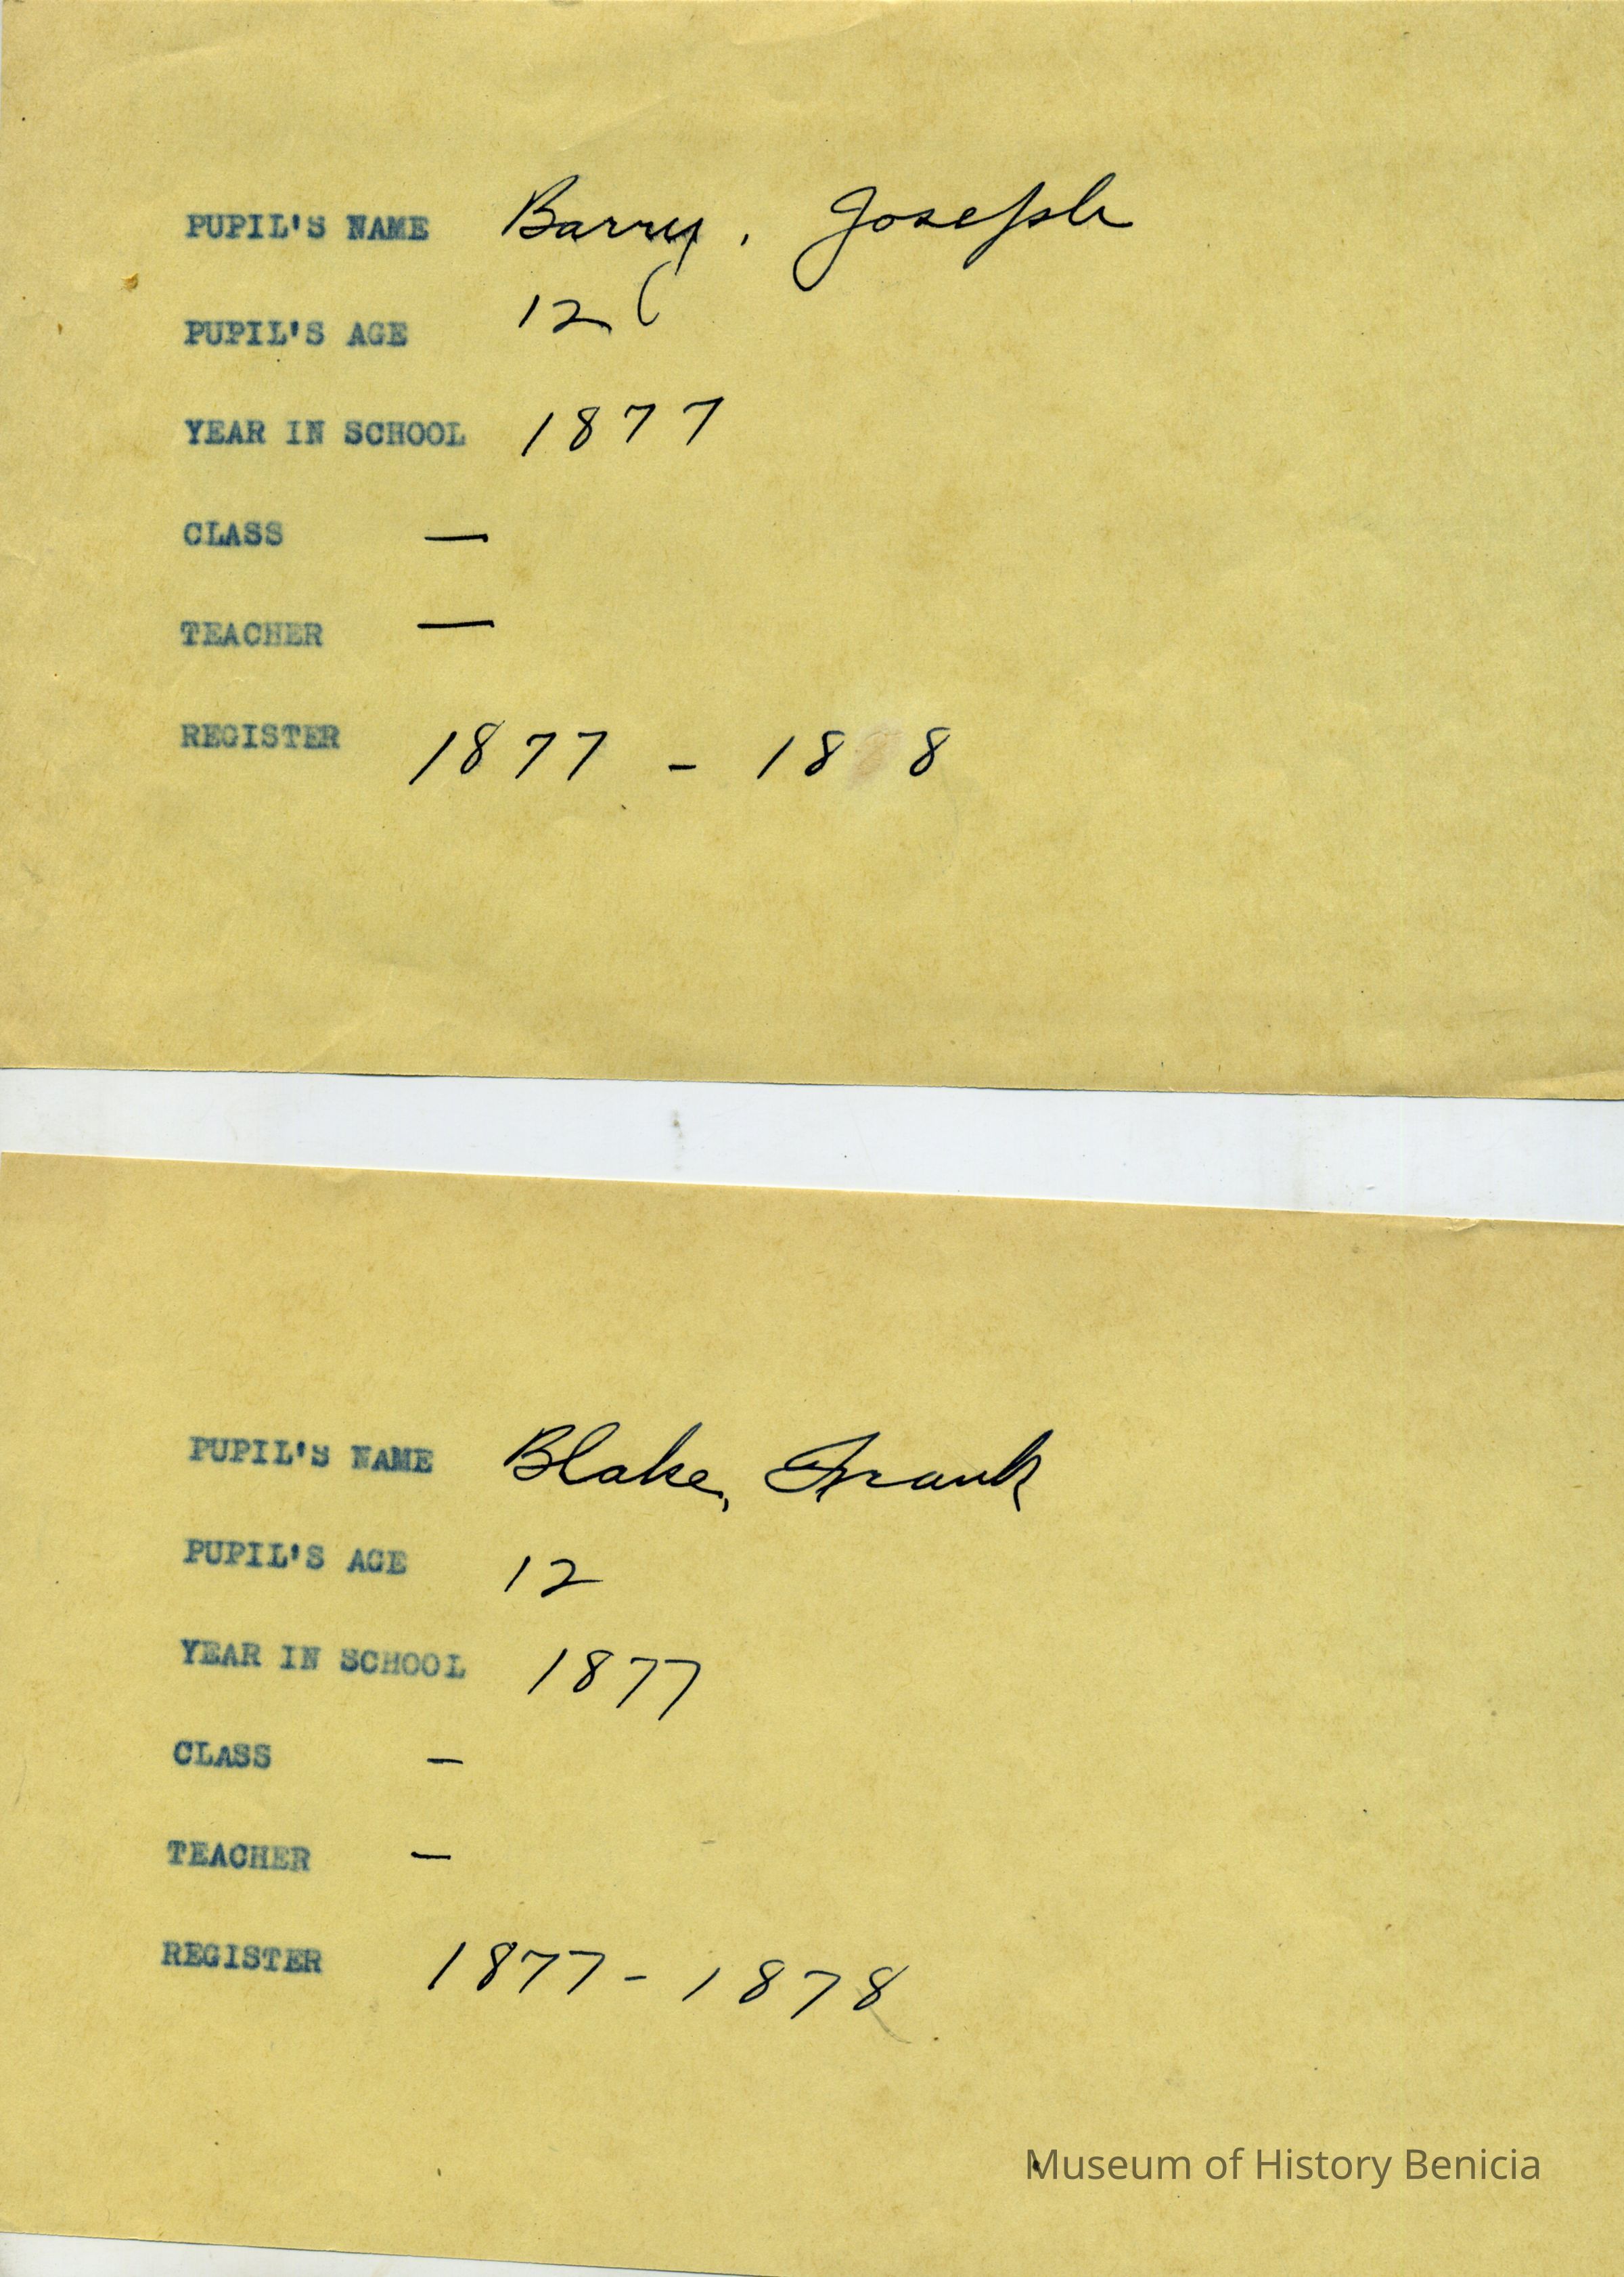 PUPIL'S NAME Barry, Joseph
PUPIL'S AGE 12
YEAR IN SCHOOL 1877
CLASS —
TEACHER —
REGISTER 1877 - 18 8
PUPIL'S NAME Blake, Frank
PUPIL'S AGE 12
YEAR IN SCHOOL 1877
CLASS -
TEACHER -
REGISTER 1877 - 1878
Museum of History Benicia